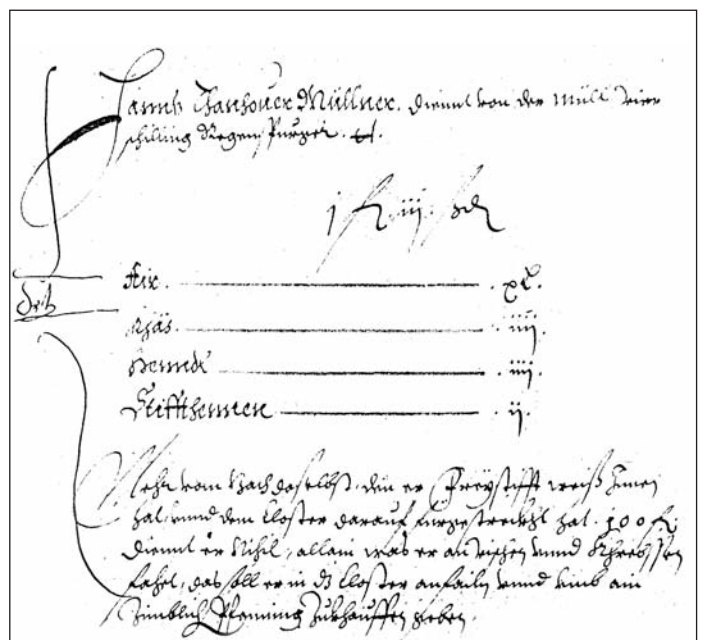 Hannß Hanhover Müllner. Diennt von der Müll vier
schilling Regenspurger. ·/·
j fl iij ß
Air. xl.
Khäs. iiij.
Henndl iiij.
Stiffthennen ij.
Drit
Mehr vom Pach daselbst, den er Freystifft weiß Innen
hat, unnd dem Closter darauf fürgestreckht hat. 100 fl
Diennt er Nihil, allain was er an Vischen unnd Khrebssen
fahet, das soll er in ds Closter anfailn unnd umb ain
Zimblich Pfenning Zukhauffen geben.